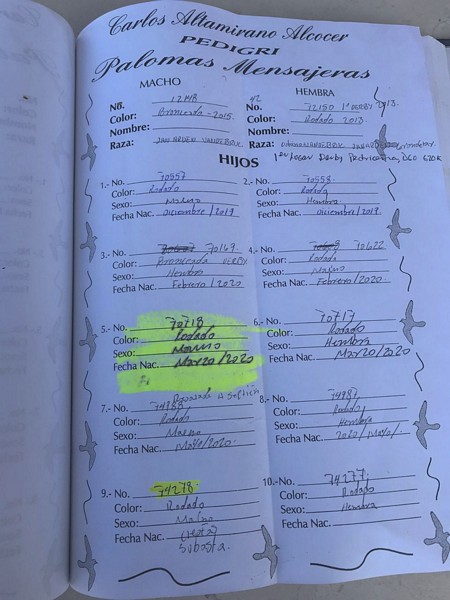 Carlos Altamirano Alcocer
PEDIGRI
Palomas Mensajeras
MACHO
HEMBRA
No. 12148
Color: Bronceada - 2015.
Nombre:
Raza: JAN ARDEN VANDERBOK
42
No. 72150 1º DERBY 2013.
Color: Rodado 2013
Nombre:
Raza:
1er lugar Derby 360 620K
HIJOS
1.- No. 70557
Color: Rodado
Sexo: Macho
Fecha Nac. Diciembre / 2019
2.- No. 70558
Color: Rodada
Sexo: Hembra
Fecha Nac. Diciembre / 2019.
3.- No. 70169
Color: Bronceada DERBY
Sexo: Hembra
Fecha Nac. Febrero / 2020
4.- No. 70622
Color: Rodada
Sexo: Macho
Fecha Nac. Febrero / 2020.
5.- No. 70718
Color: Rodado
Sexo: Macho
Fecha Nac. Marzo / 2020
6.- No. 70717
Color: Rodado
Sexo: Hembra
Fecha Nac. Marzo / 2020
7.- No. 74988
Color: Rodado
Sexo: Macho
Fecha Nac. Mayo / 2020.
8.- No. 74987
Color: Rodado
Sexo: Hembra
Fecha Nac. 2020 / Mayo / -
9.- No. 74278.
Color: Rodado
Sexo: Macho
Fecha Nac.
Subasta.
10.- No. 74277.
Color: Rodado
Sexo: Hembra
Fecha Nac.